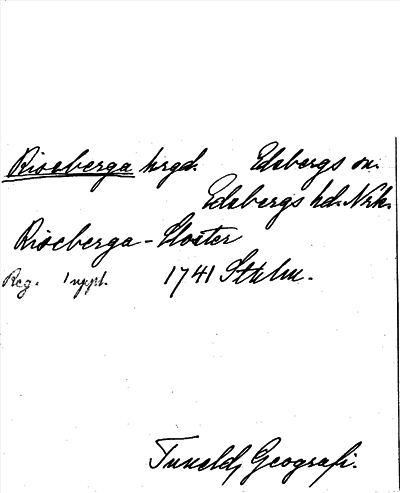 Riseberga hrgd. Edsbergs sn.
Edsbergs hd. Nrk.
Riseberga-Kloster
Reg. 1 uppl. 1741 Sthlm.
Tuneld, Geografi.